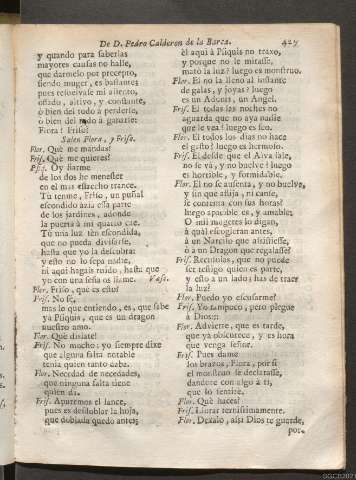 De D. Pedro Calderon de la Barca.
427
y quando para saberlas
mayores causas no halle,
que darmelo por precepto,
siendo muger, es bastante;
pues resuelvase mi aliento,
osado, altivo, y constante,
ò bien del todo à perderse,
ò bien del todo à ganarse:
Flora! Friso!
Salen Flora, y Friso.
Flor. Què me mandas?
Fris. Què me quieres?
Psi. Oy fiarme
de los dos he menester
en el mas estrecho trance.
Tù tenme, Friso, un puñal
escondido àzia essa parte
de los jardines, adonde
la puerta à mi quarto cae.
Tù una luz ten escondida,
que no pueda divisarse,
hasta que yo la descubra;
y esto no lo sepa nadie,
ni aqui hagais ruido, hasta que
yo con una seña os llame. Vase.
Flor. Friso, què es esto?
Fris. No sè,
mas lo que entiendo, es, que sabe
yà Psiquis, que es un dragon
nuestro amo.
Flor. Què dixiste?
Fris. No mucho: yo siempre dixe
que alguna falta notable
tenia quien tanto daba.
Flor. Necedad de necedades,
que ninguna falta tiene
quien dà.
Fris. Apuremos el lance,
pues es desdoblar la hoja,
que doblada quedò antes;
èl aqui à Psiquis no traxo,
y porque no le mirasse,
matò la luz? luego es monstruo.
Flor. El no la llenò al instante
de galas, y joyas? luego
es un Adonis, un Angel.
Fris. El todas las noches no
aguarda que no aya nadie
que le vea? luego es feo.
Flor. El todos los dias no hace
el gasto? luego es hermoso.
Fris. El desde que el Alva sale,
no se và, y no buelve? luego
es horrible, y formidable.
Flor. El no se ausenta, y no buelve,
y sin que aflija, ni canse,
se contenta con sus horas?
luego apacible es, y amable:
O mil mugeres lo digan,
à quàl escogieran antes,
à un Narciso que assistiesse,
ò à un Dragon que regalasse?
Fris. Recusolas, que no puede
ser testigo quien es parte,
y esto à un lado; has de traer
la luz?
Flor. Puedo yo escusarme?
Fris. Yo tampoco, pero plegue
à Dios:::
Flor. Advierte, que es tarde,
que yà obscurece, y es hora
que venga señor.
Fris. Pues dame
los brazos, Flora, por si
el monstruo se declarasse,
dandote con algo à ti,
que lo sentirè.
Flor. Què haces?
Fris. Llorar ternissimamente.
Flor. Dexalo, assi Dios te guarde,
por-